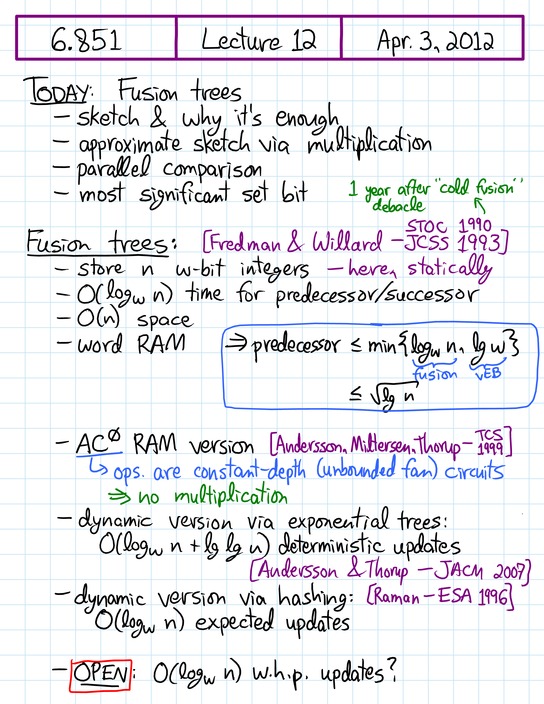 6.851 Lecture 12 Apr. 3, 2012
TODAY: Fusion trees
- sketch & why it's enough
- approximate sketch via multiplication
- parallel comparison
- most significant set bit
1 year after "cold fusion"
debacle
Fusion trees: [Fredman & Willard - STOC 1990
JCSS 1993]
- store n w-bit integers - here, statically
- O(log_w n) time for predecessor/successor
- O(n) space
- word RAM
⇒ predecessor ≤ min{log_w n, lg w}
fusion vEB
≤ √lg n
- AC⁰ RAM version [Andersson, Miltersen, Thorup - TCS 1999]
↳ ops. are constant-depth (unbounded fan) circuits
⇒ no multiplication
- dynamic version via exponential trees:
O(log_w n + lg lg n) deterministic updates
[Andersson & Thorup - JACM 2007]
- dynamic version via hashing: [Raman - ESA 1996]
O(log_w n) expected updates
- OPEN: O(log_w n) w.h.p. updates?